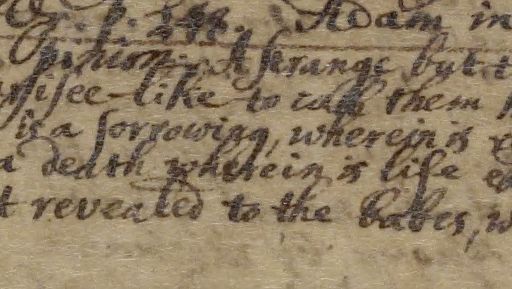 Adam in
A strange but t
isee-like to call them
is a sorrowing, wherein is
a death wherein is life
t revealed to the babes, w